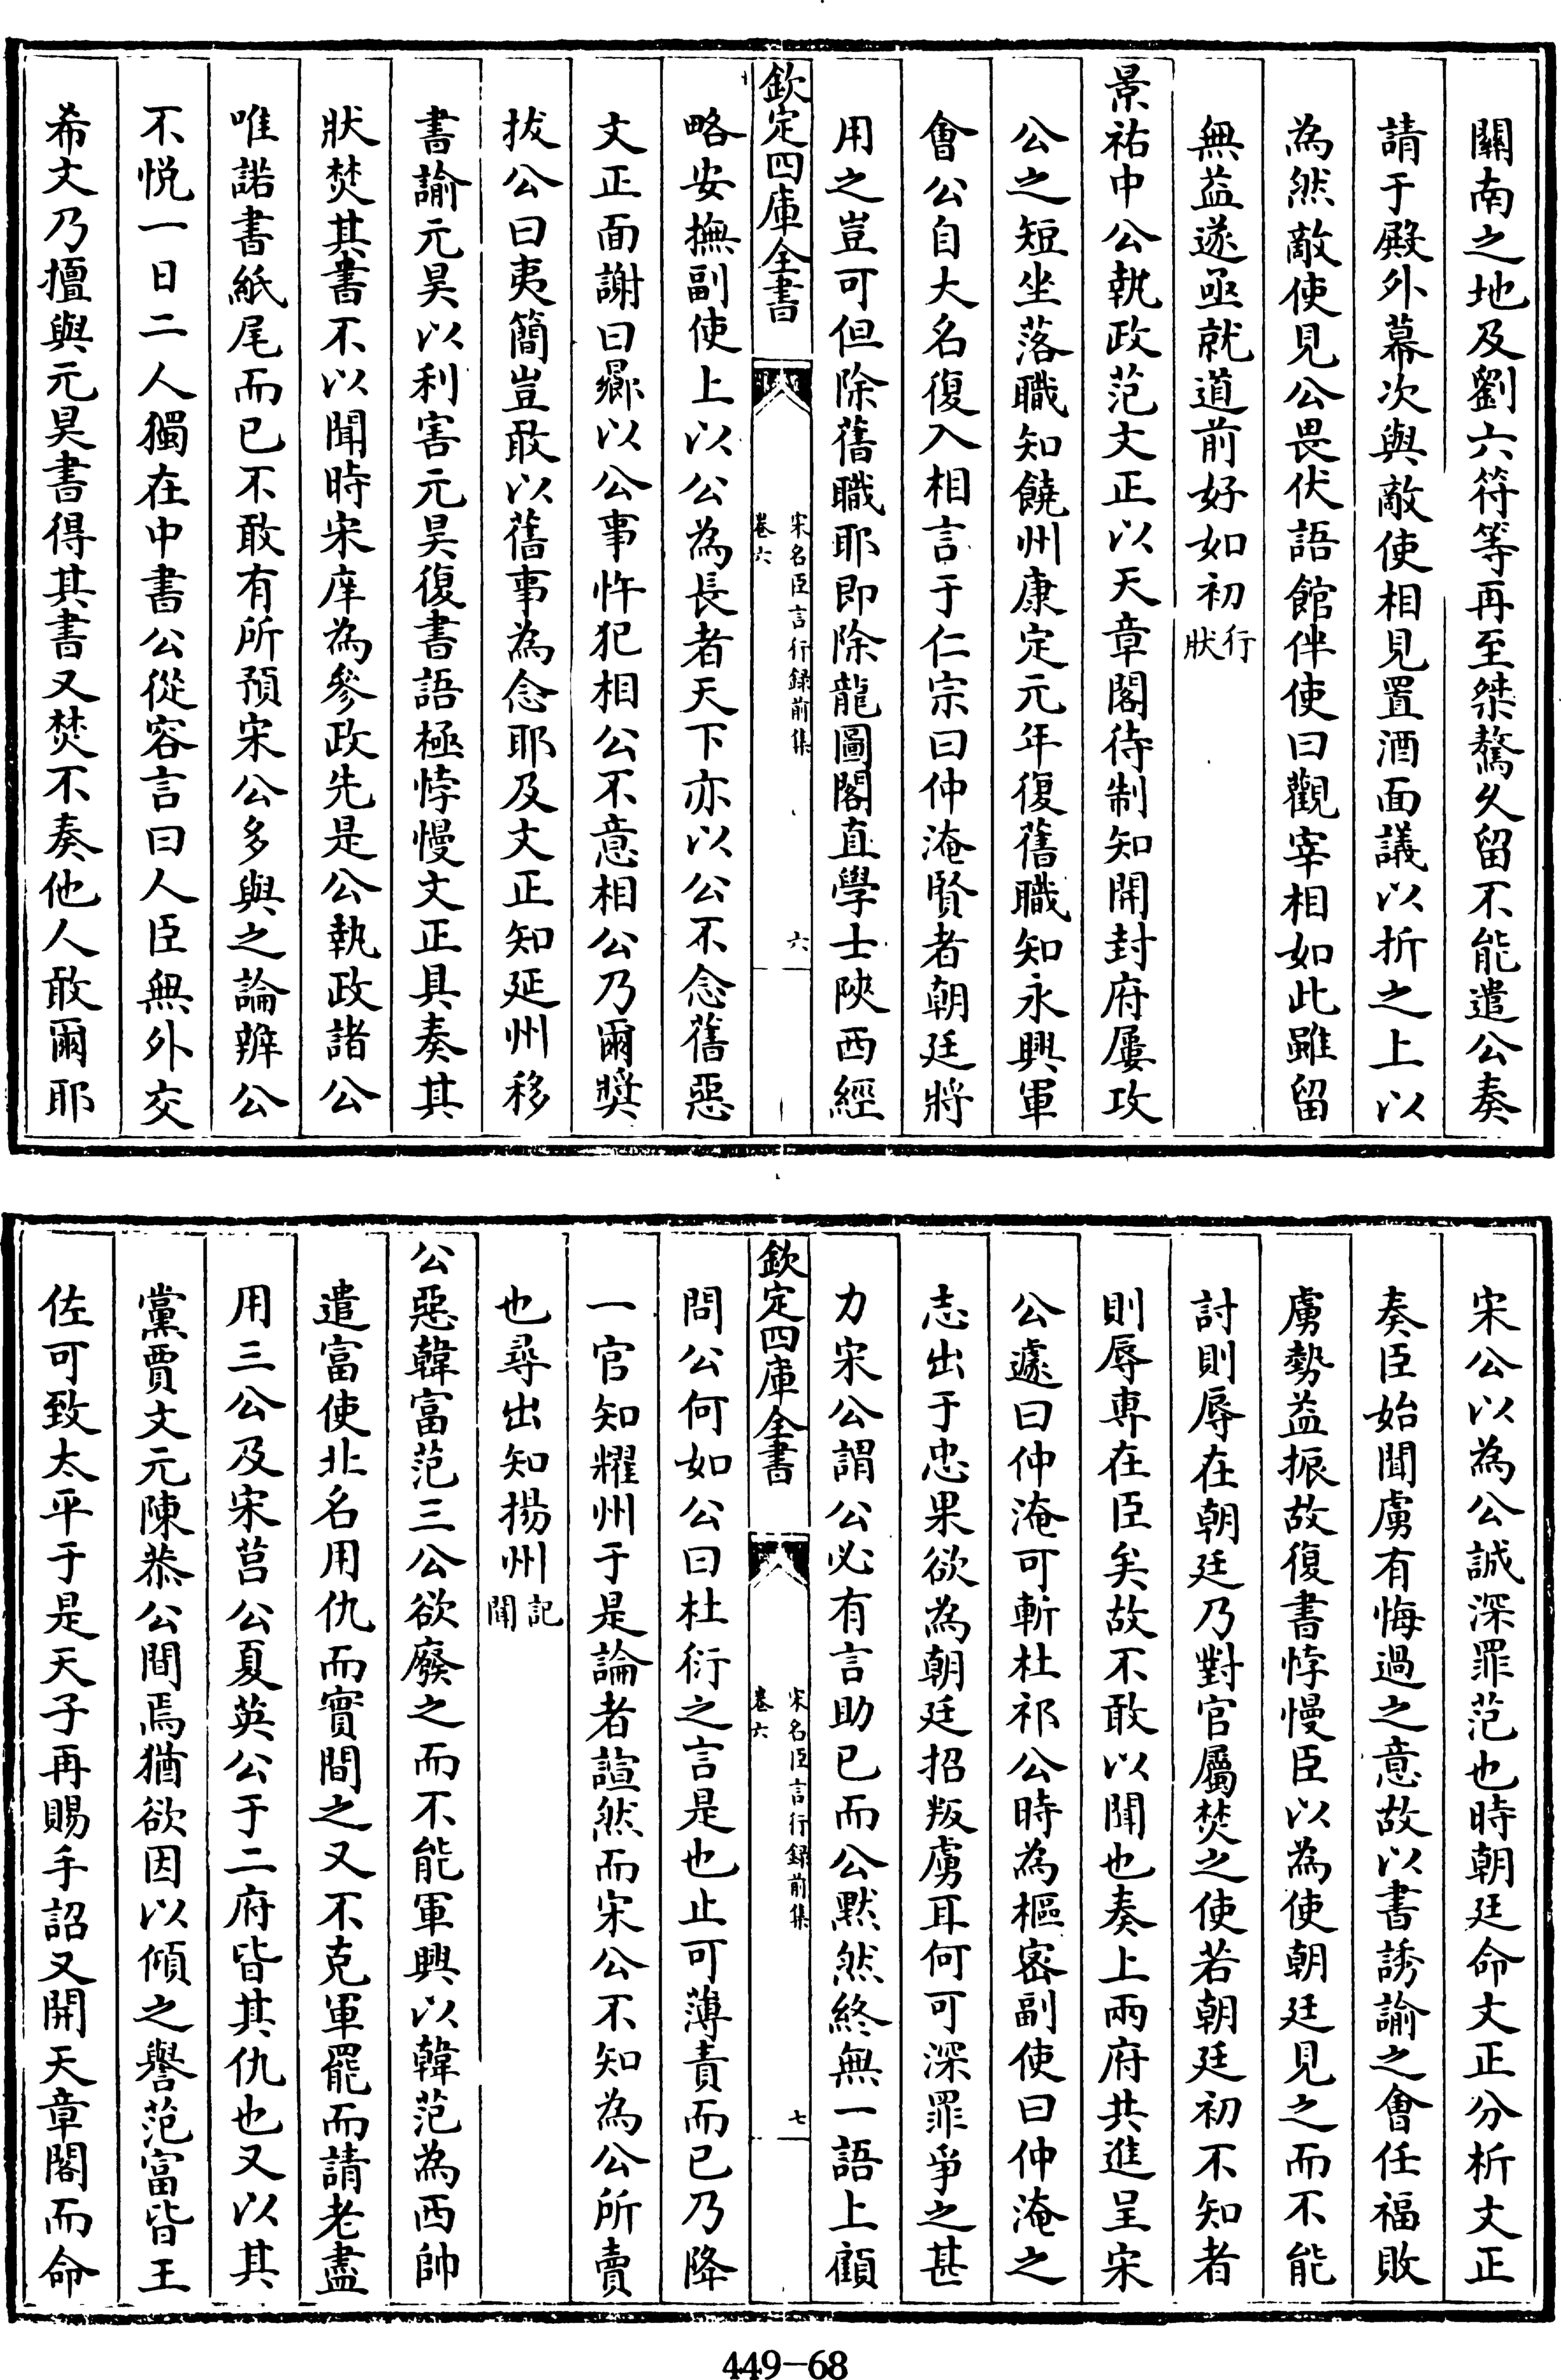 關南之地及劉六符等再至桀驁久留不能遣公奏
請于殿外幕次與敵使相見置酒面議以折之上以
為然敵使見公畏伏語館伴使曰觀宰相如此雖留
無益遂亟就道前好如初行狀
景祐中公執政范文正以天章閣待制知開封府屢攻
公之短坐落職知饒州康定元年復舊職知永興軍
會公自大名復入相言于仁宗曰仲淹賢者朝廷將
用之豈可但除舊職耶即除龍圖閣直學士陝西經
欽定四庫全書
宋名臣言行録前集
卷六
六
略安撫副使上以公為長者天下亦以公不念舊惡
文正面謝曰鄉以公事忤犯相公不意相公乃爾奬
拔公曰夷簡豈敢以舊事為念耶及文正知延州移
書諭元昊以利害元昊復書語極悖慢文正具奏其
狀焚其書不以聞時宋庠為參政先是公執政諸公
唯諾書紙尾而已不敢有所預宋公多與之論辨公
不悦一日二人獨在中書公從容言曰人臣無外交
希文乃擅與元昊書得其書又焚不奏他人敢爾耶
宋公以為公誠深罪范也時朝廷命文正分析文正
奏臣始聞虜有悔過之意故以書誘諭之會任福敗
虜勢益振故復書悖慢臣以為使朝廷見之而不能
討則辱在朝廷乃對官屬焚之使若朝廷初不知者
則辱專在臣矣故不敢以聞也奏上兩府共進呈宋
公遽曰仲淹可斬杜祁公時為樞密副使曰仲淹之
志出于忠果欲為朝廷招叛虜耳何可深罪爭之甚
力宋公謂公必有言助已而公默然終無一語上顧
欽定四庫全書
宋名臣言行録前集
卷六
七
問公何如公曰杜衍之言是也止可薄責而已乃降
一官知耀州于是論者諠然而宋公不知為公所賣
也尋出知揚州記聞
公惡韓富范三公欲廢之而不能軍興以韓范為西帥
遣富使北名用仇而實間之又不克軍罷而請老盡
用三公及宋莒公夏英公于二府皆其仇也又以其
黨賈文元陳恭公間焉猶欲因以傾之譽范富皆王
佐可致太平于是天子再賜手詔又開天章閣而命
449-68